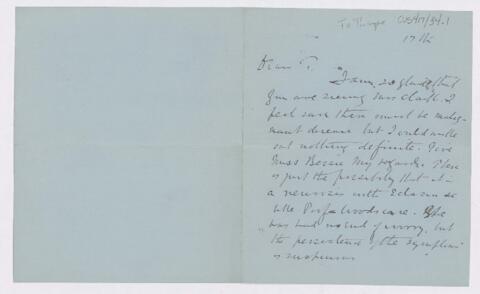 To Thorpe CUS417/34.1
17th
Dear T.
I am so glad that
you are seeing Miss Clark. I
feel sure there must be malig-
nant disease but I could make
out nothing definite. Give
Miss Bessie my regards. There
is just the possibility that it is
a neurosis with
like case. She
has had no end of worry, but
the persistence of the symptoms
is suspicious